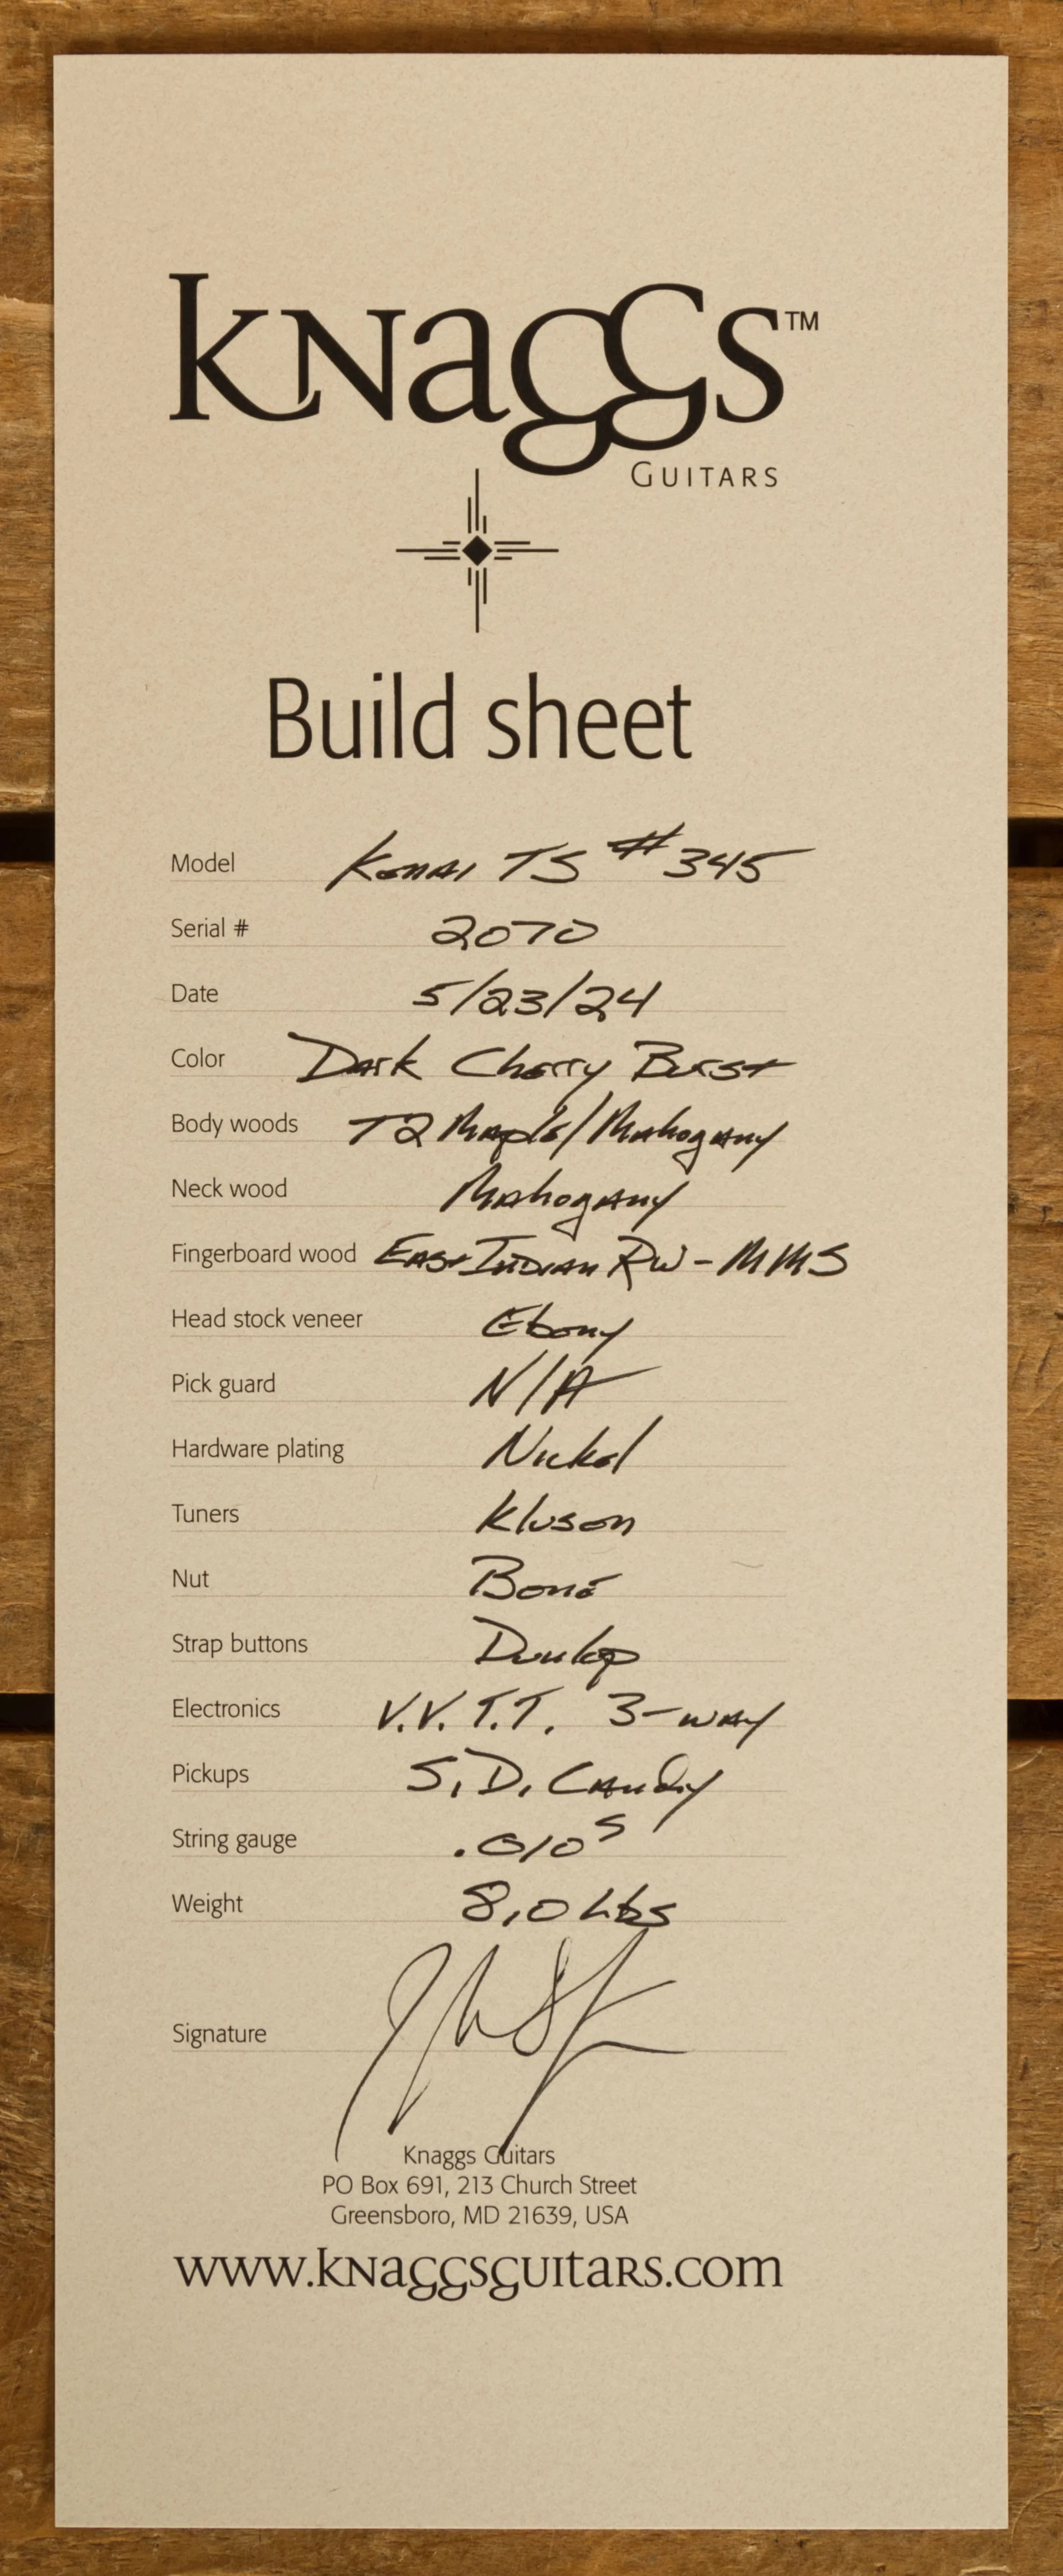 KNAGGS™
GUITARS
Build sheet
Model Kenai TS #345
Serial # 2070
Date 5/23/24
Color Dark Cherry Burst
Body woods T2 Maple/Mahogany
Neck wood Mahogany
Fingerboard wood East Indian RW-MMS
Head stock veneer Ebony
Pick guard N/A
Hardware plating Nickel
Tuners Kluson
Nut Bone
Strap buttons Dunlop
Electronics V.V.T.T. 3-way
Pickups S.D. Candy
String gauge .010s
Weight 8.0 Lbs
Signature
Knaggs Guitars
PO Box 691, 213 Church Street
Greensboro, MD 21639, USA
www.knaggsguitars.com